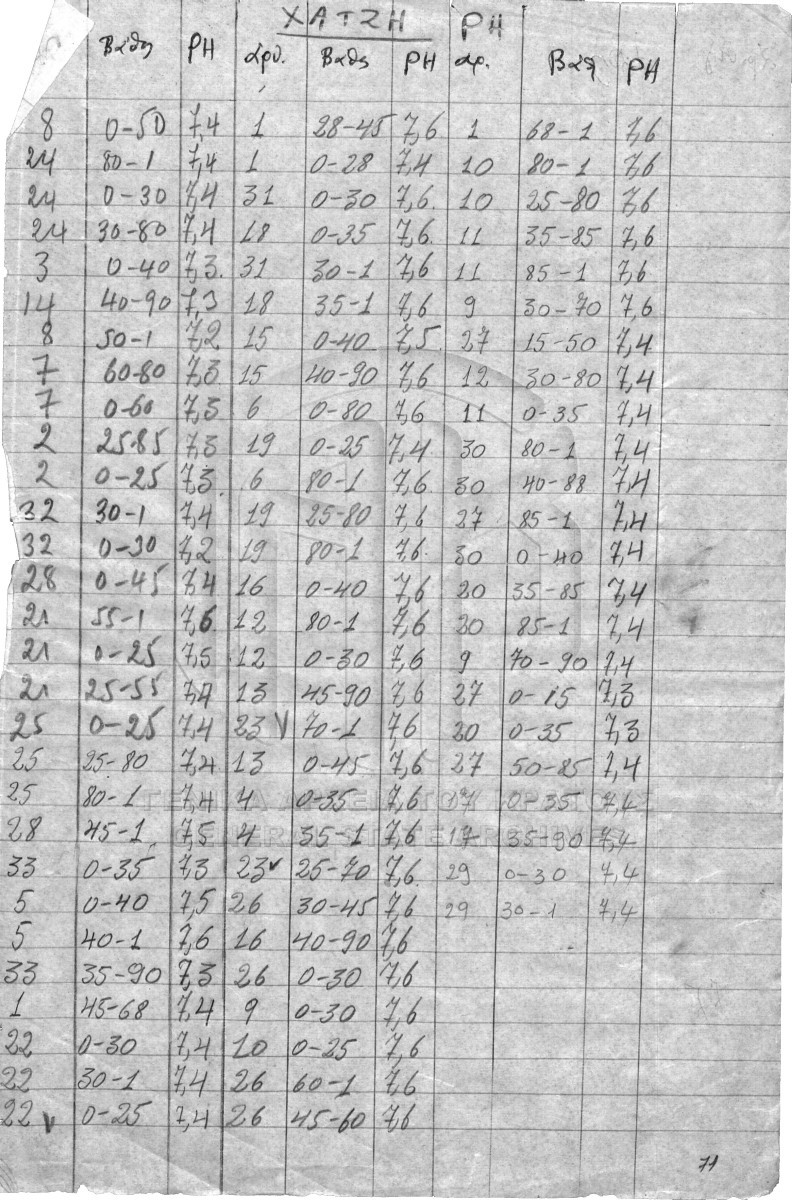 ΧΑΤΖΗ PH
Βάθ PH Αρθ. Βάθ PH αρ. Βάθ PH
8 0-50 7,4 1 28-45 7,6 1 68-1 7,6
24 80-1 7,4 1 0-28 7,4 10 80-1 7,6
24 0-30 7,4 31 0-30 7,6 10 25-80 7,6
24 30-80 7,4 18 0-35 7,6 11 35-85 7,6
3 0-40 7,3 31 30-1 7,6 11 85-1 7,6
14 40-90 7,3 18 35-1 7,6 9 30-70 7,6
8 50-1 7,2 15 0-40 7,5 27 15-50 7,4
7 60-80 7,3 15 40-90 7,6 12 30-80 7,4
7 0-60 7,3 6 0-80 7,6 11 0-35 7,4
2 25-85 7,3 19 0-25 7,4 30 80-1 7,4
2 0-25 7,3 6 80-1 7,6 30 40-88 7,4
32 30-1 7,4 19 25-80 7,6 27 85-1 7,4
32 0-30 7,2 19 80-1 7,6 30 0-40 7,4
28 0-45 7,4 16 0-40 7,6 20 35-85 7,4
21 55-1 7,6 12 80-1 7,6 20 85-1 7,4
21 0-25 7,5 12 0-30 7,6 9 70-90 7,4
21 25-55 7,4 13 45-90 7,6 27 0-15 7,3
25 0-25 7,4 23 V 70-1 7,6 20 0-35 7,3
25 25-80 7,4 13 0-45 7,6 27 50-85 7,4
25 80-1 7,4 4 0-35 7,6 17 0-35 7,4
28 45-1 7,5 4 35-1 7,6 17 35-90 7,4
33 0-35 7,3 23 v 25-70 7,6 29 0-30 7,4
5 0-40 7,5 26 30-45 7,6 29 30-1 7,4
5 40-1 7,6 16 40-90 7,6
33 35-90 7,3 26 0-30 7,6
1 45-68 7,4 9 0-30 7,6
22 0-30 7,4 10 0-25 7,6
22 30-1 7,4 26 60-1 7,6
22 v 0-25 7,4 26 45-60 7,6
71